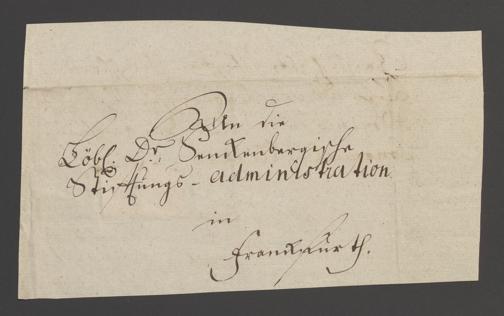 An die
Löbl. Dr. Senckenbergische
Stiftungs-administration
in
Franckfurth.